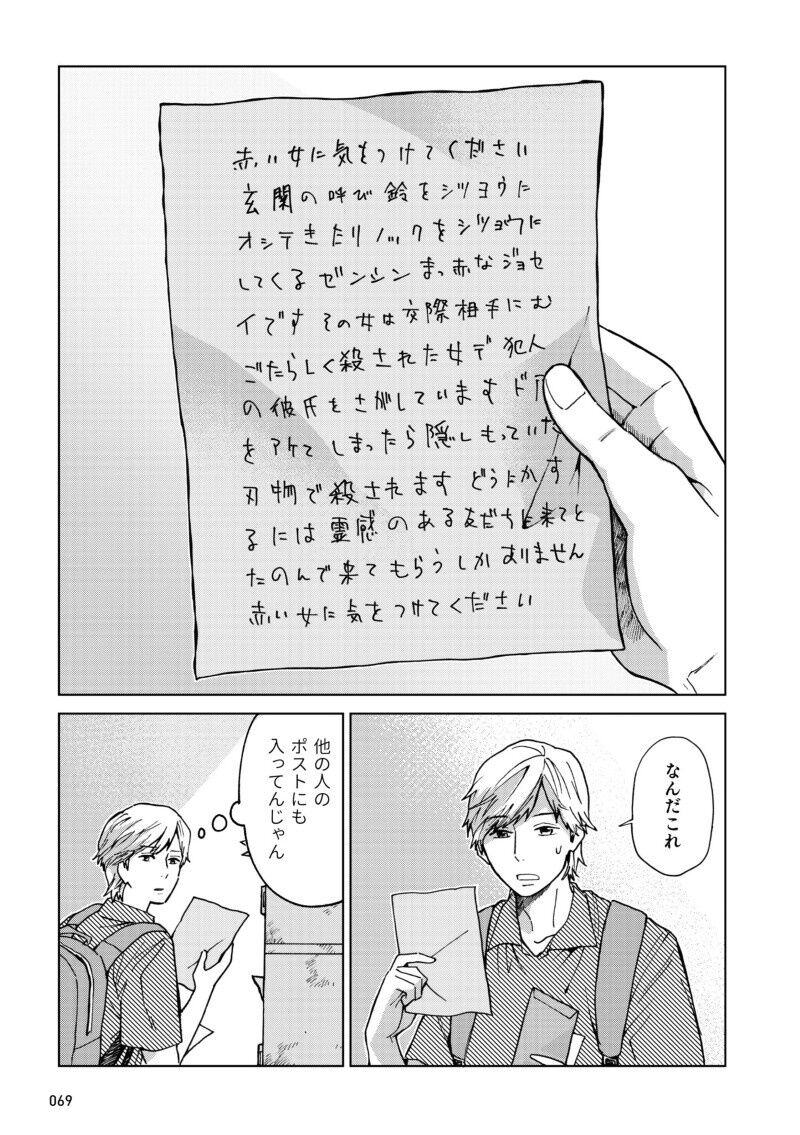 赤い女に気をつけてください
玄関の呼び鈴をシツヨウに
オシテきたりノックをシツョウに
してくるゼンシンまっ赤なジョセ
イです その女は交際相手にむ
ごたらしく殺された女デ犯人
の彼氏をさがしています ド
をアケてしまったら隠しもってい
刃物で殺されます どうにかす
るには霊感のある友だちに来てと
たのんで来てもらうしかありません
赤い女に気をつけてください
なんだこれ
他の人の
ポストにも
入ってんじゃん
069